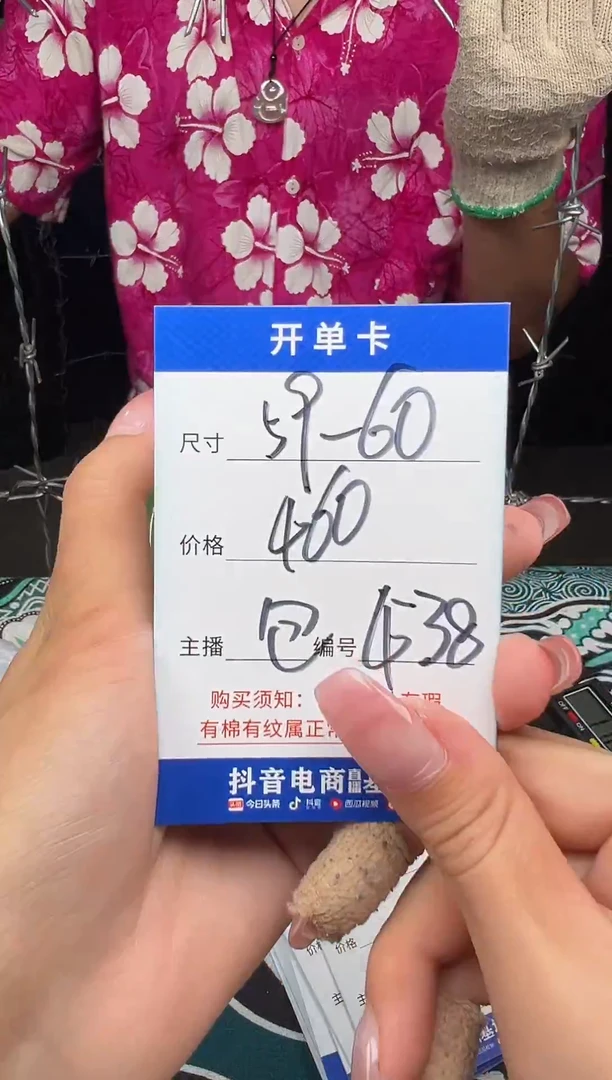 开单卡
尺寸 59-60
价格 460
主播 包 编号 4538
购买须知：
有棉有纹属正常
抖音电商直播基
今日头条 抖音 西瓜视频
价格